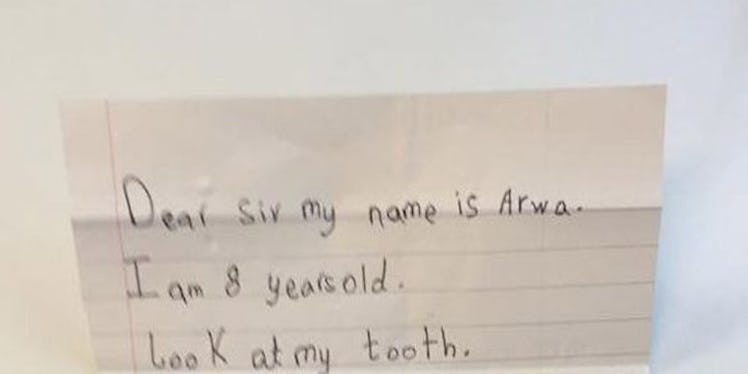 Dear sir my name is Arwa.
I am 8 years old.
Look at my tooth.